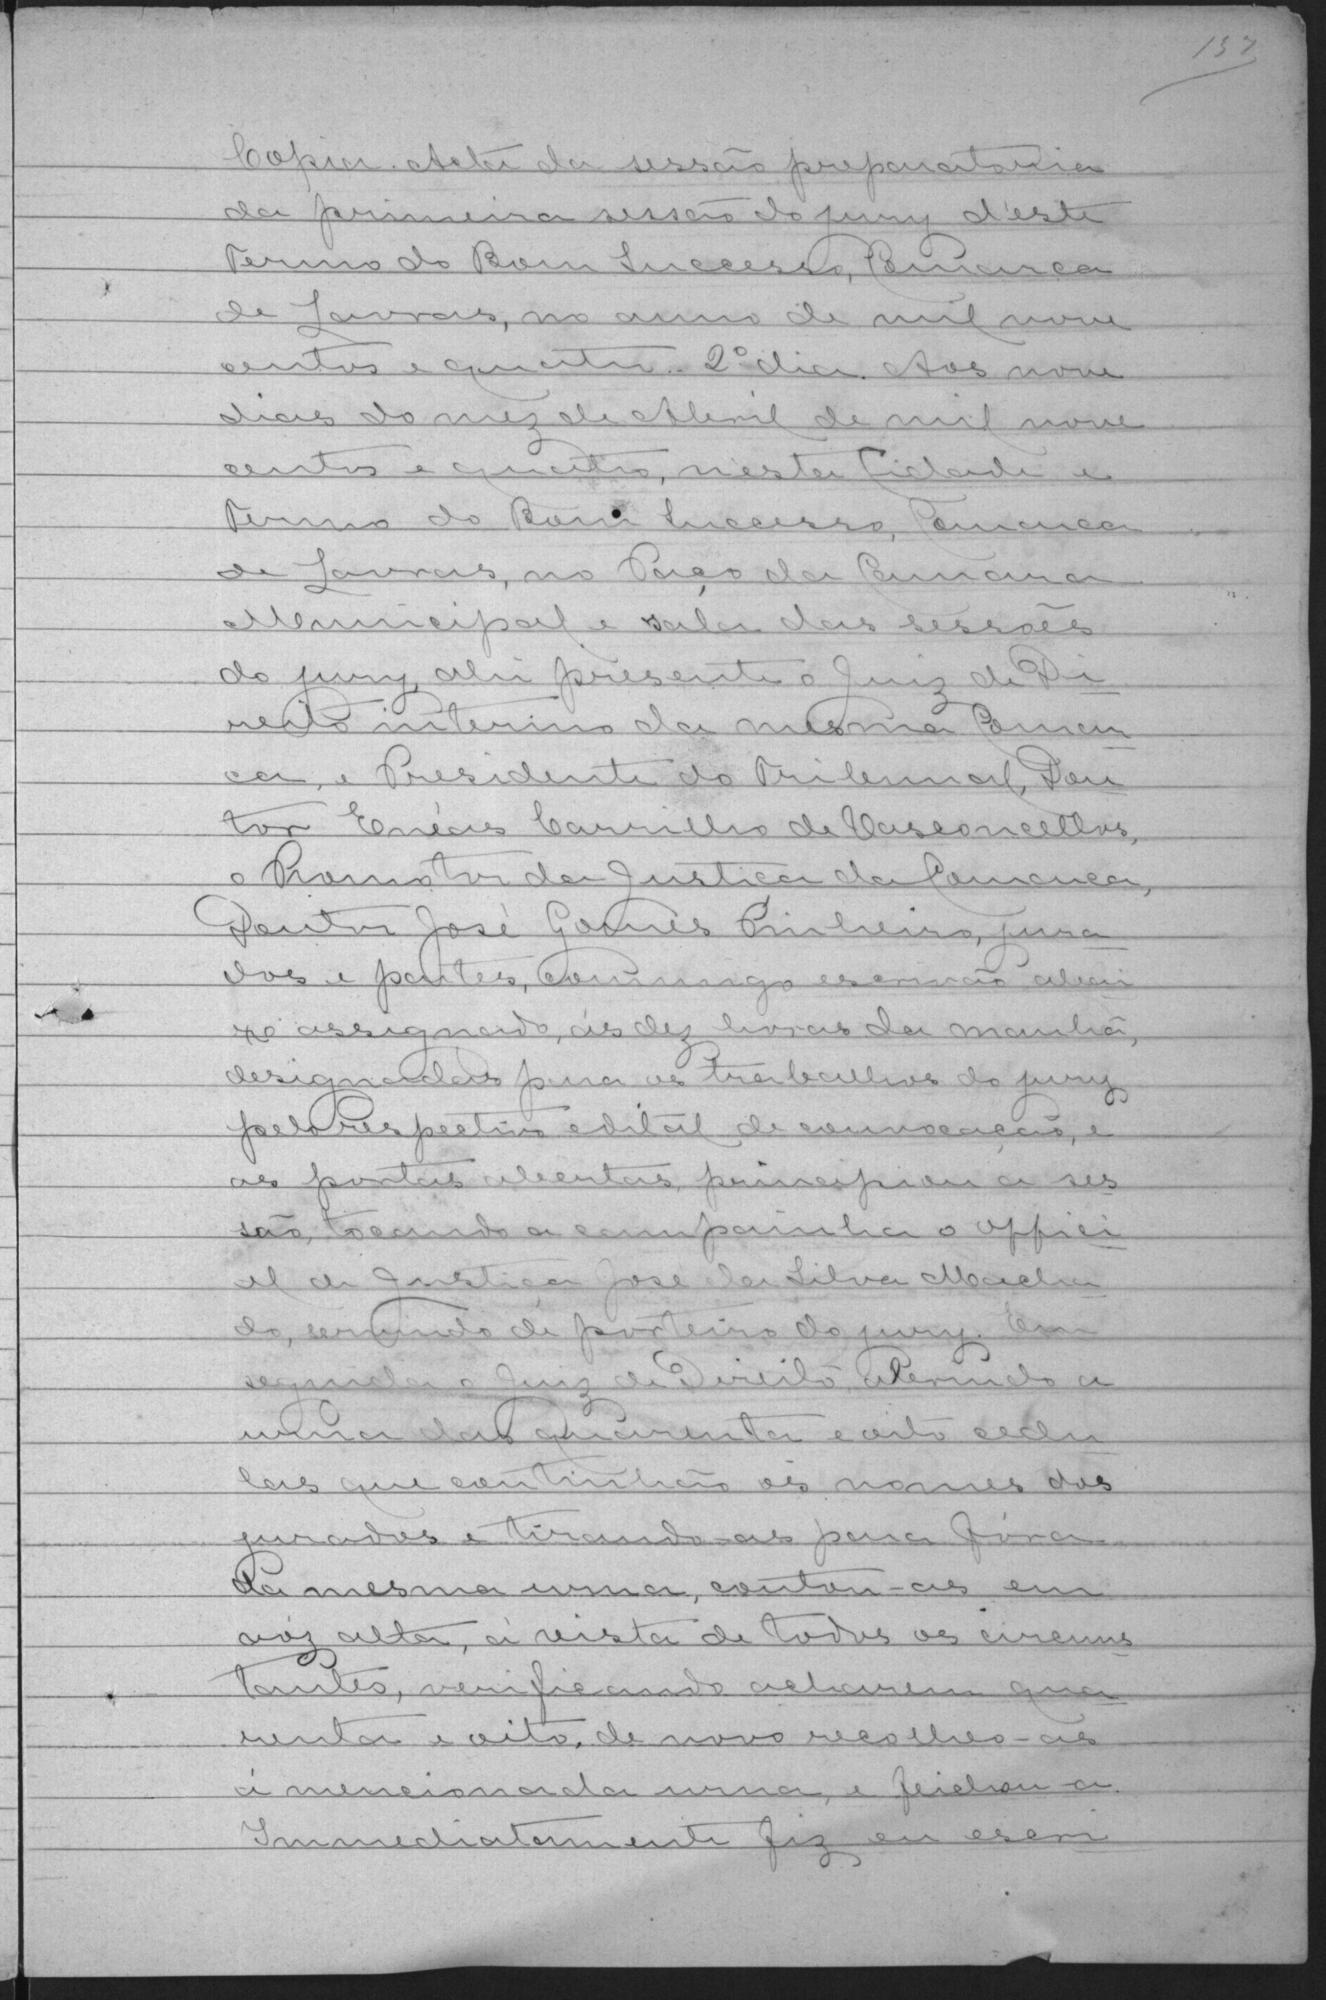 137
Copia. Acta da sessão preparatoria
da primeira sessão do jury d'este
Termo do Bom Successo, Comarca
de Lavras, no anno de mil nove
centos e quatro. 2º dia. Aos nove
dias do mez de Abril de mil nove
centos e quatro, n'esta Cidade e
Termo do Bom Successo, Comarca
de Lavras, no Paço da Camara
Municipal e sala das sessões
do jury, ahi presente o Juiz de Di
reito interino da mesma Comar
ca, e Presidente do Tribunal, Dou
tor Enéas Carrilho de Vasconcellos,
o Promotor da Justiça da Comarca,
Doutor José Gomes Pinheiro, jura
dos e partes, commigo escrivão abai
xo assignado, ás dez horas da manhã,
designadas para os trabalhos do jury
pelo respectivo edital de convocação, e
as portas abertas, principiou a ses
são, tocando a campainha o offici
al de Justiça José da Silva Macha
do, servindo de porteiro do jury. Em
seguida o Juiz de Direito, abrindo a
urna das quarenta e oito cedu
las que continhão os nomes dos
jurados e tirando-as para fóra
da mesma urna, contou-as em
vóz alta, á vista de todos os circums
tantes, verificando acharem qua
renta e oito, de novo recolheo-as
á mencionada urna, e feichou-a.
Immediatamente fiz eu escri